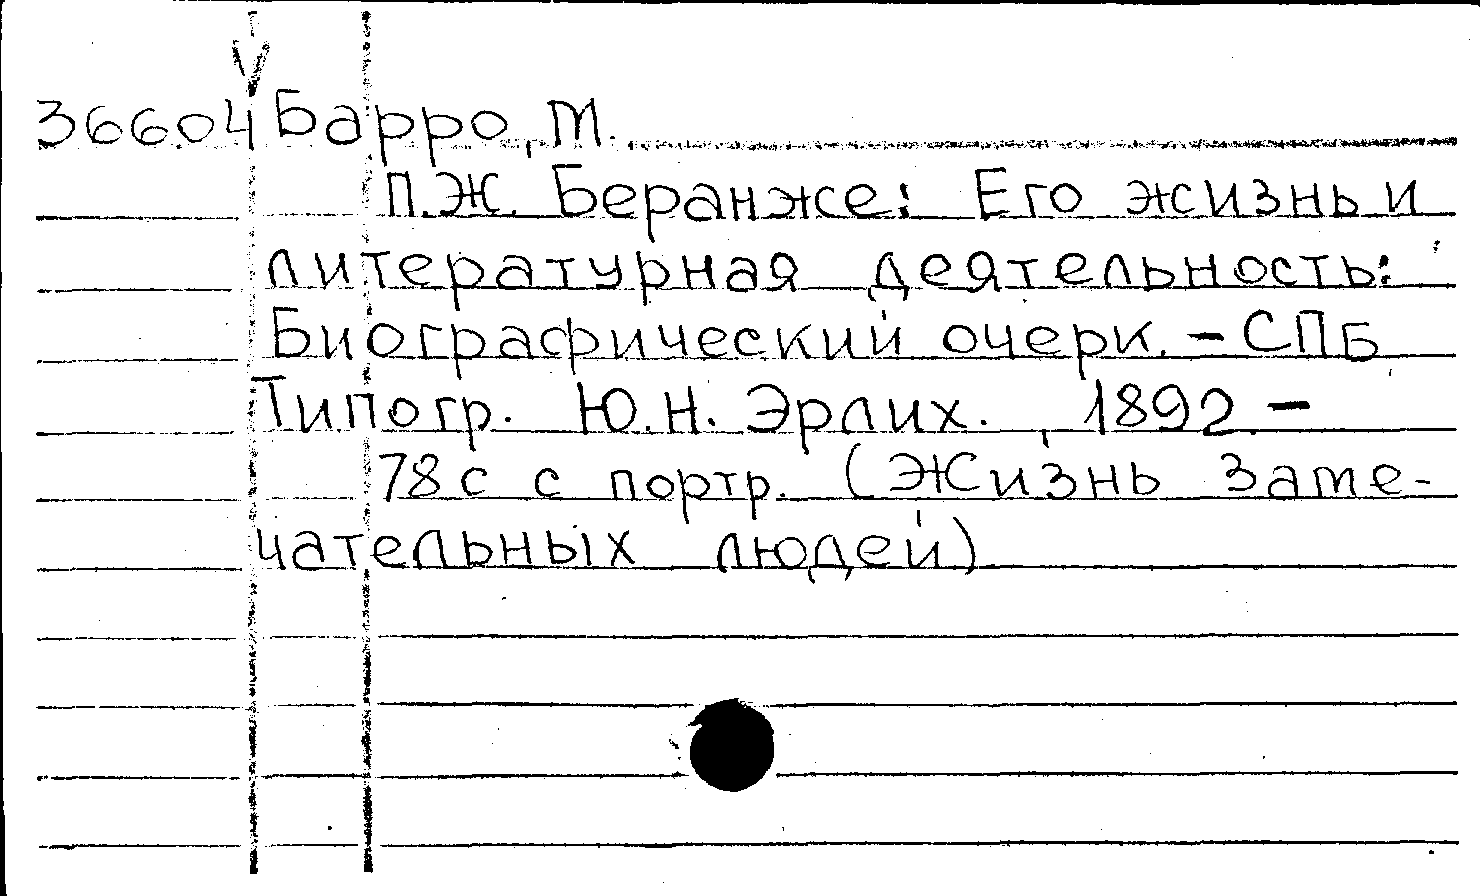 V
36604 Барро, М.
П.Ж. Беранже: Его жизнь и
литературная деятельность:
Биографический очерк. - СПБ
Типогр. Ю.Н. Эрлих. , 1892. -
78 с с портр. (Жизнь заме-
чательных людей)